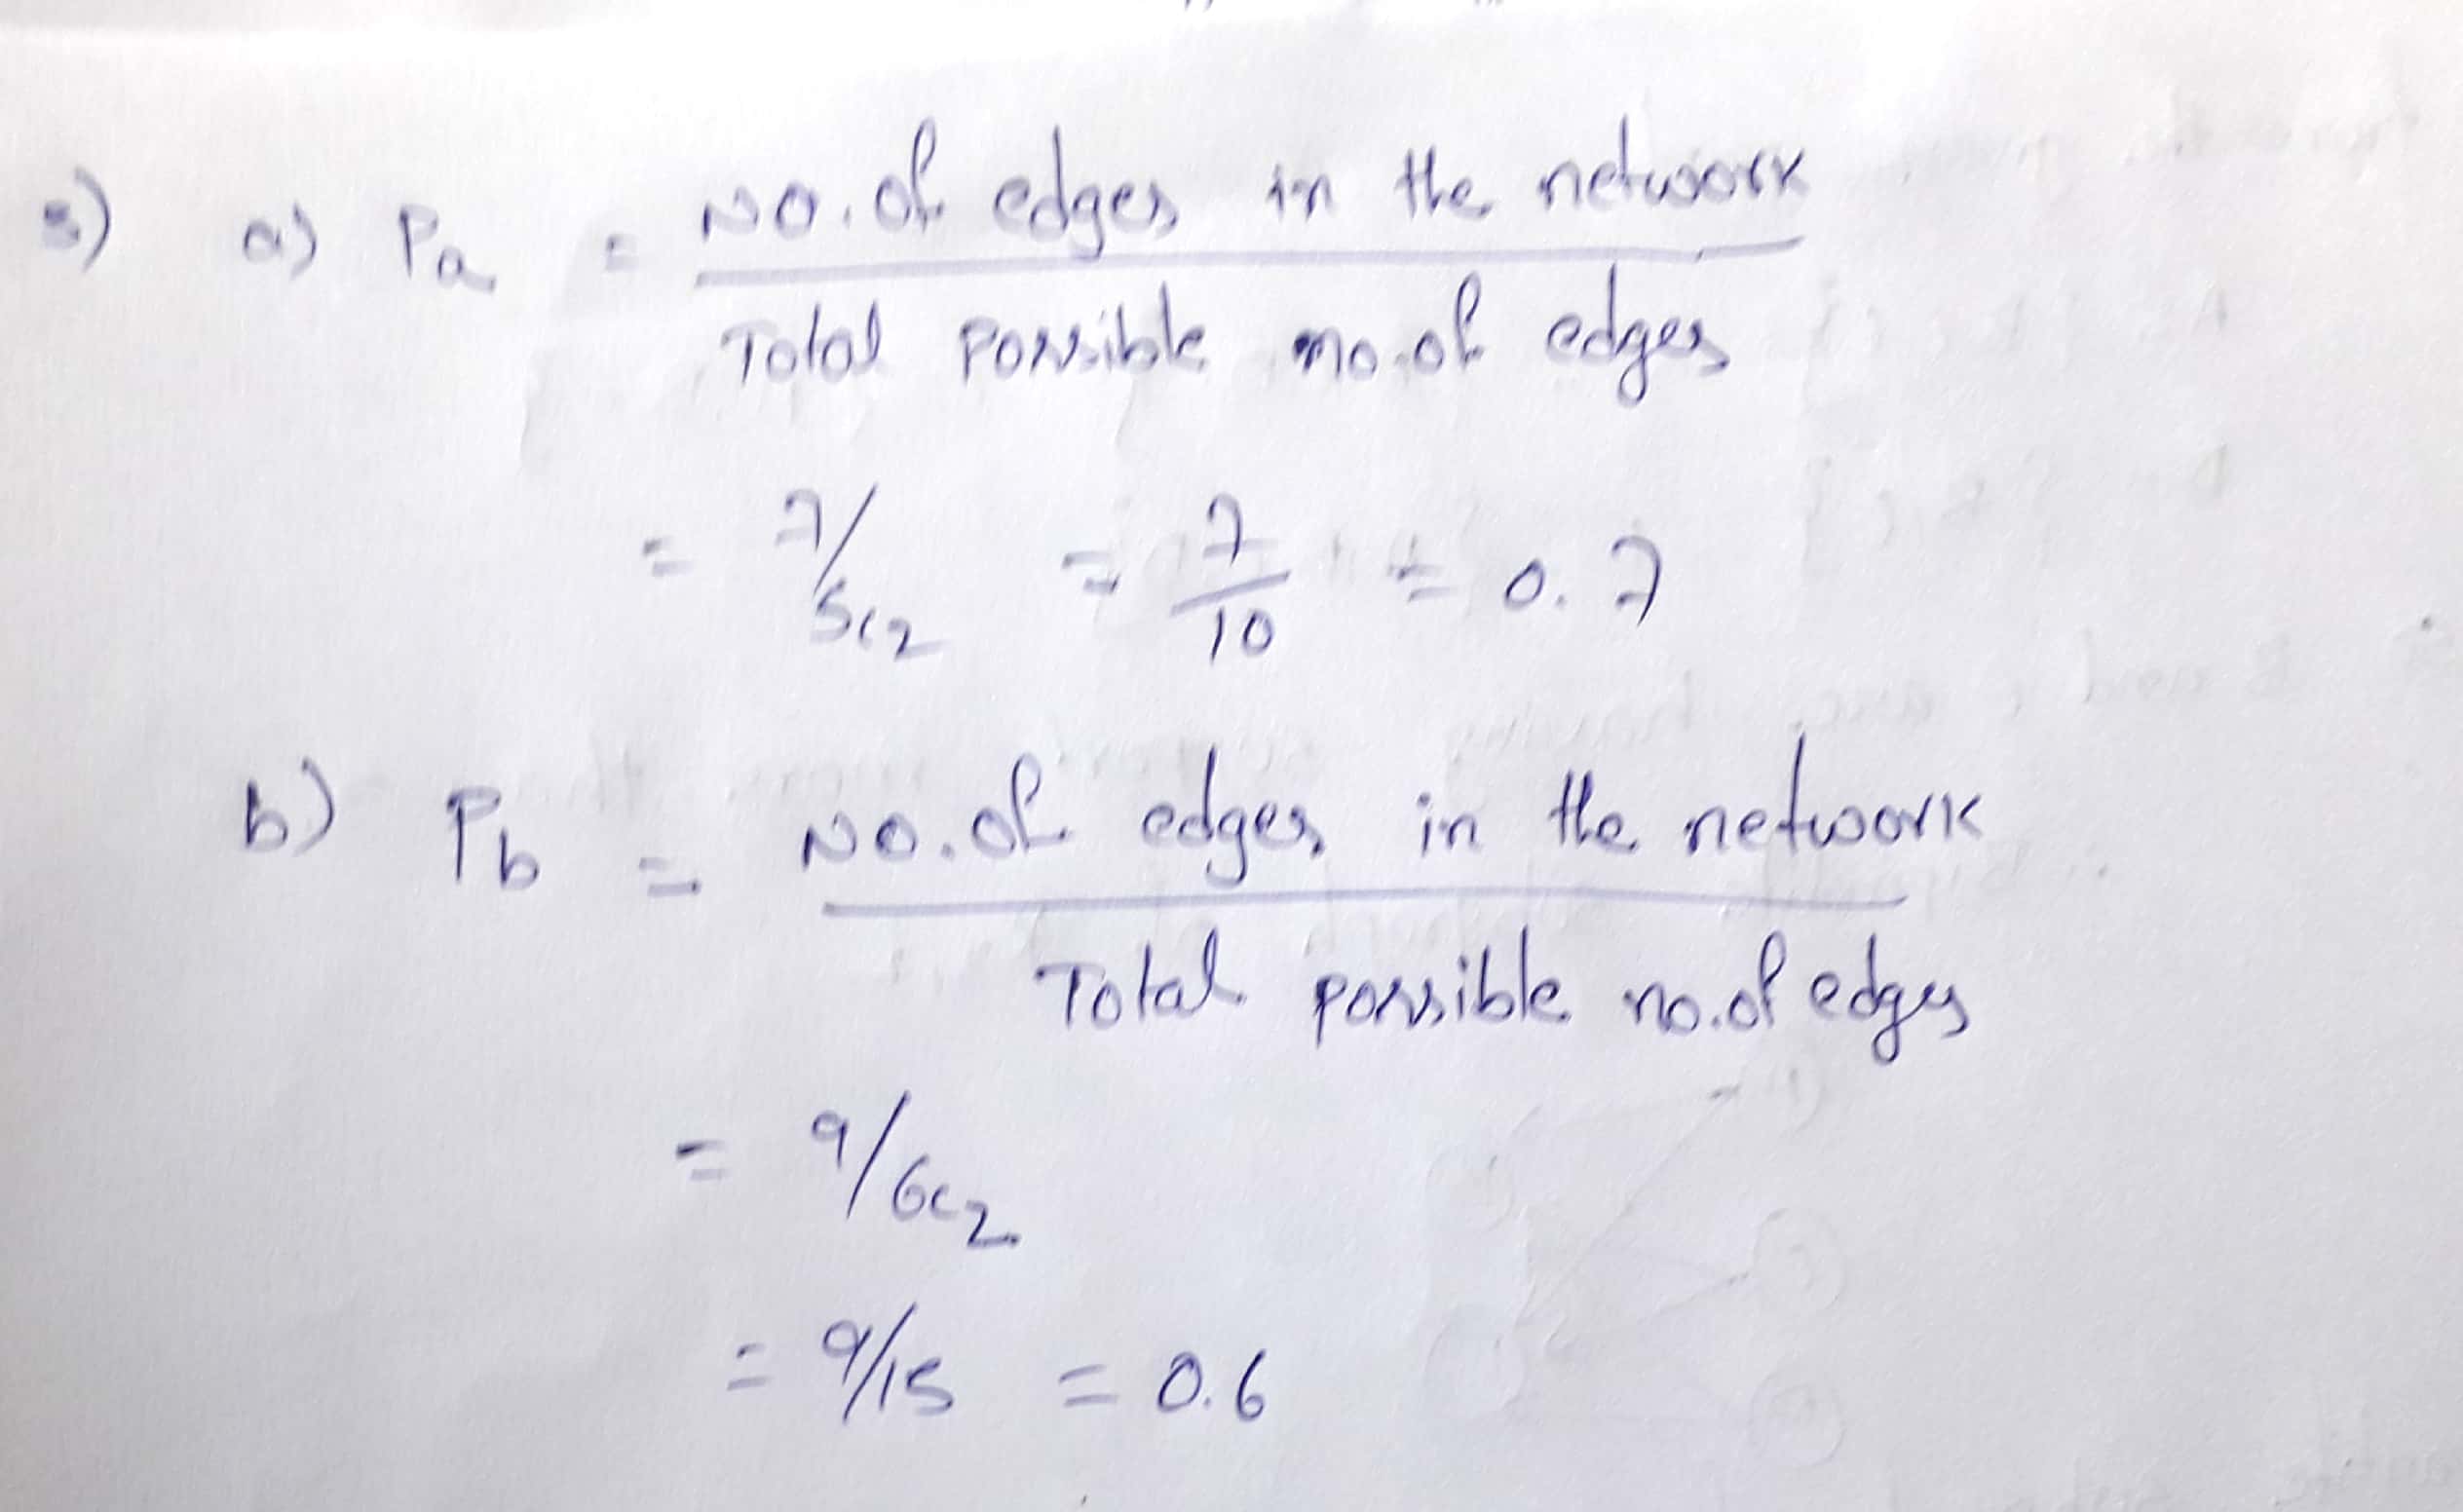 3) a) Pa = No. of edges in the network
Total possible no. of edges
= 7/5c2 = 7/10 = 0.7
b) Pb = No. of edges in the network
Total possible no. of edges
= 9/6c2
= 9/15 = 0.6